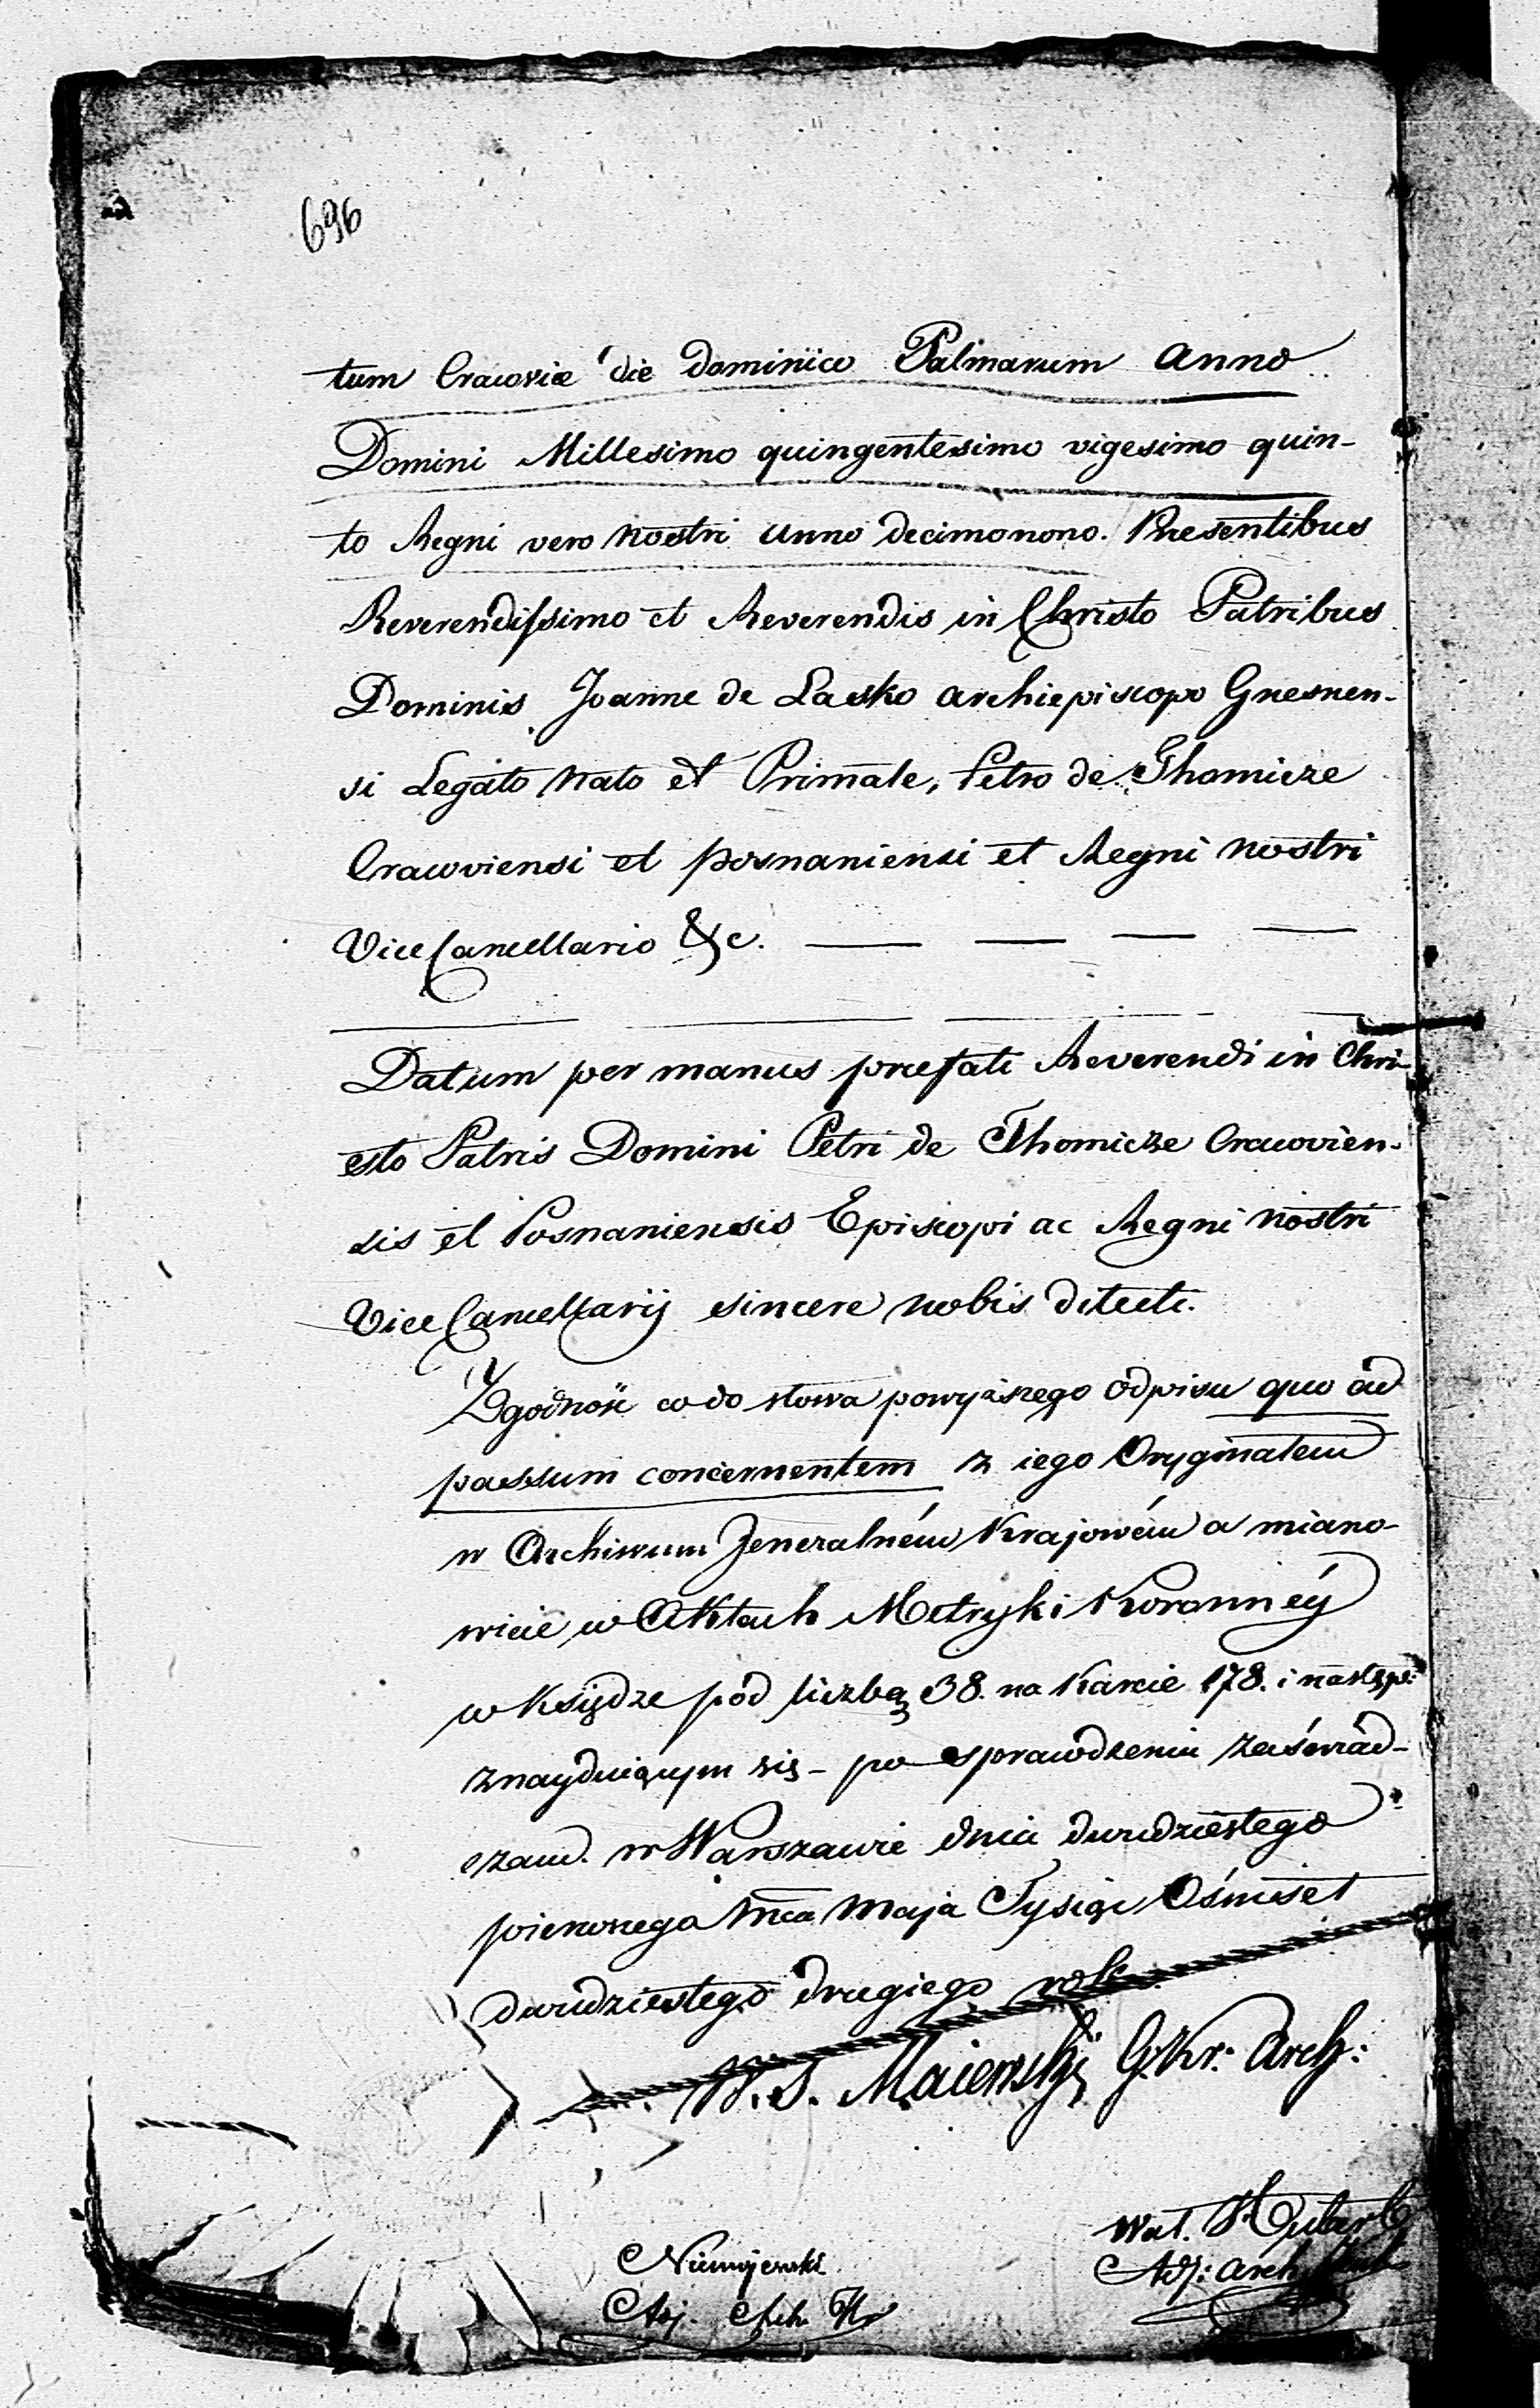 696
tum Cracoviæ die Dominico Palmarum anno
Domini Millesimo quingentesimo vigesimo quin-
to Regni vero nostri anno decimonono. Presentibus
Reverendissimo et Reverendis in Christo Patribus
Dominis Joanne de Lasko archiepiscopo Gnesnen-
si Legato nato et Primate, Petro de Thomicze
Cracoviensi et posnaniensi et Regni nostri
Vice Cancellario &c. — — — —
Datum per manus præfati Reverendi in Chri-
sto Patris Domini Petri de Thomicze Cracovien-
sis et Posnaniensis Episcopi ac Regni nostri
Vice Cancellarij sincere nobis dilecti.
Zgodność co do słowa powyższego odpisu quo ad
passum concernentem z iego Oryginałem
w Archiwum Jeneralném Krajowém a miano-
wicie w Aktach Metryki Koronnéy
w Księdze pod liczbą 38. na karcie 178. i następ:
znayduiącym się - po sprawdzeniu zaświad-
czam. w Warszawie dnia dwudziestego
pierwszego mca Maja Tysiąc Ośmset
dwudziestego drugiego roku
W. S. Maiewski G. Kr: Arch:
Wal. Hubert
Adj: Arch.
Niemojewski
Adj. Arch. Kr